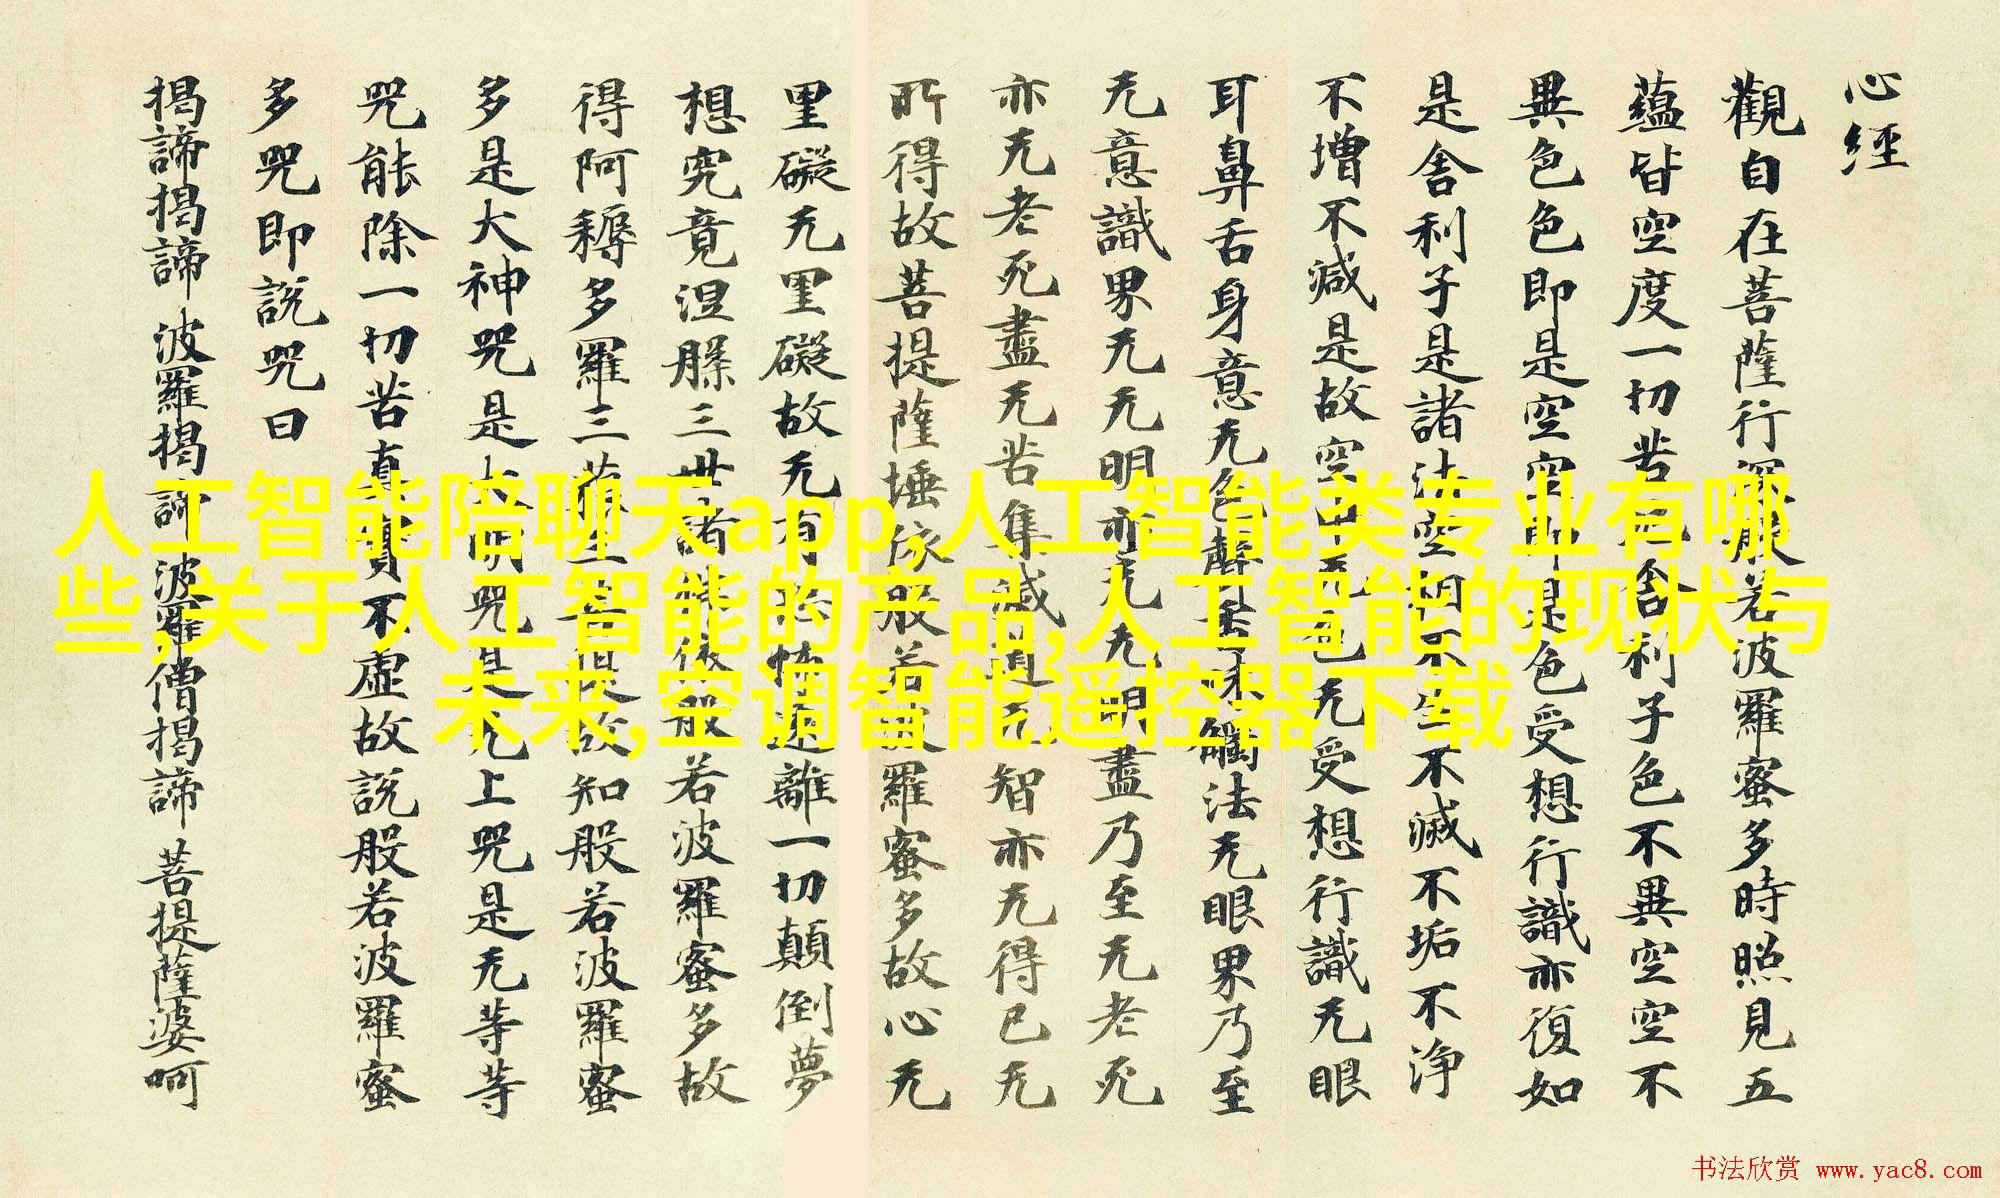 心經
觀自在菩薩行深般若波羅蜜多時照見五
蘊皆空度一切苦厄舍利子色不異空空不
異色色即是空空即是色受想行識亦復如
是舍利子是諸法空相不生不滅不垢不淨
不增不減是故空中无色无受想行識无眼
耳鼻舌身意无色聲香味觸法无眼界乃至
无意識界无无明亦无无明盡乃至无老死
亦无老死盡无苦集滅道无智亦无得已无
所得故菩提薩埵依般若波羅蜜多故心无
罣礙无罣礙故无有恐怖遠離一切顛倒夢
想究竟涅槃三世諸佛依般若波羅蜜多故
得阿耨多羅三藐三菩提故知般若波羅蜜
多是大神咒是大明咒是无上咒是无等等
咒能除一切苦真實不虛故說般若波羅蜜
多咒即說咒曰
揭諦揭諦 波羅揭諦 波羅僧揭諦 菩提薩婆呵
人工智能陪聊天app,人工智能类专业有哪
些,关于人工智能的产品,人工智能的现状与
未来,空调智能遥控器下载
书法欣赏 www.yac8.com